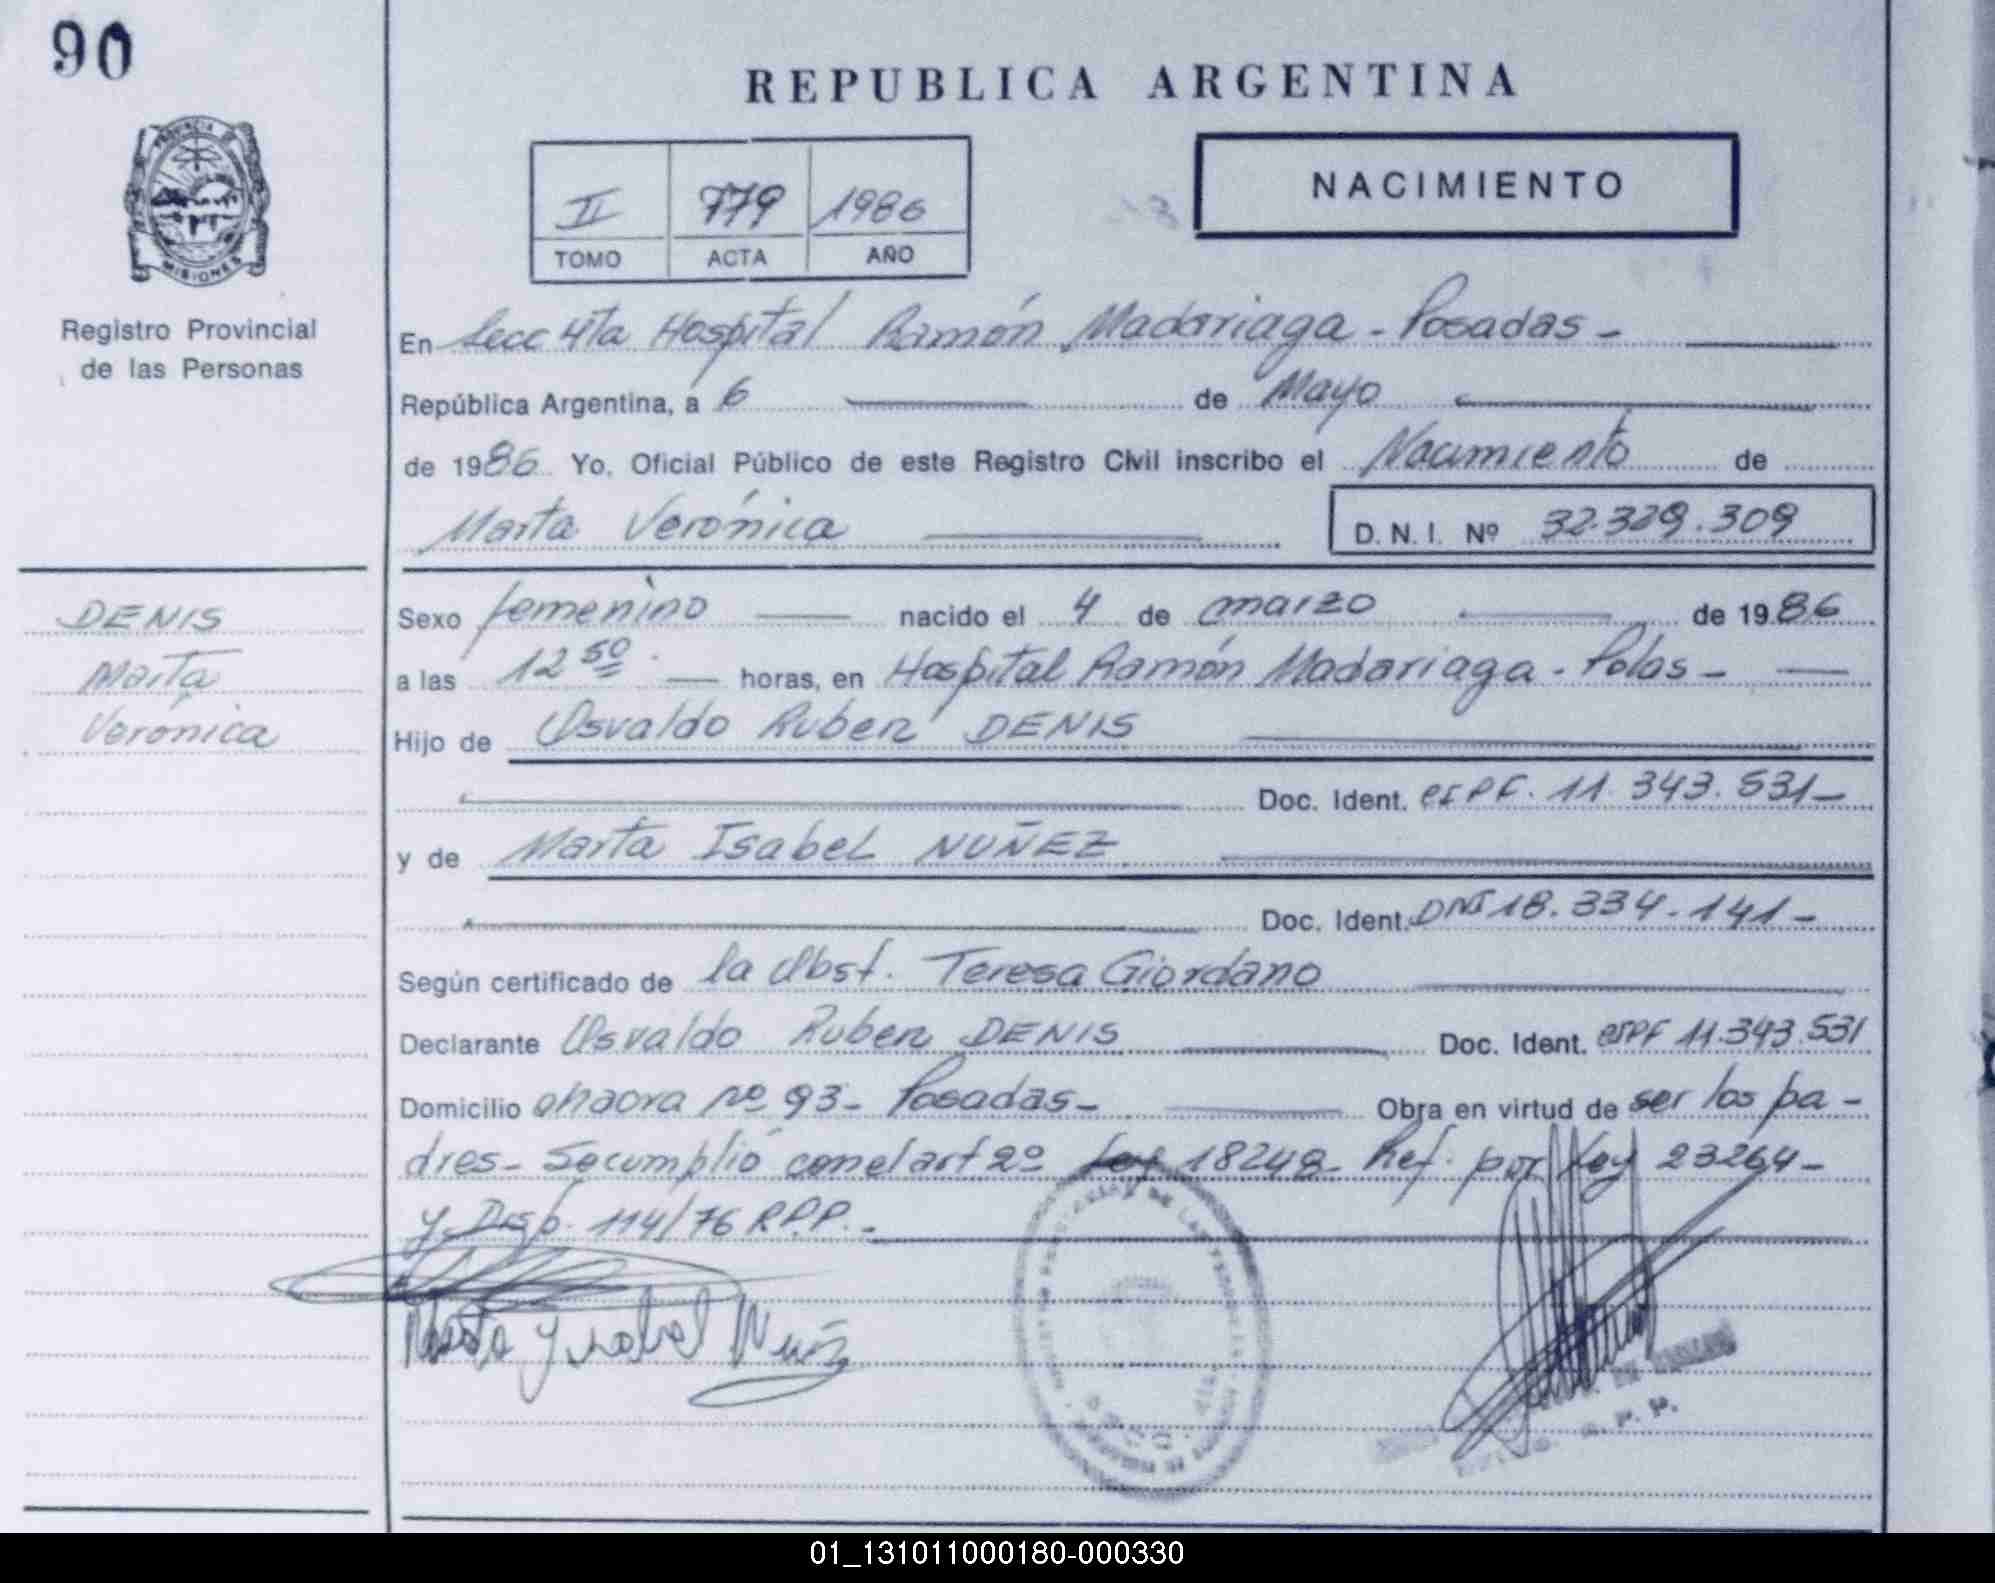 90
REPUBLICA ARGENTINA
PROVINCIA DE
MISIONES
Registro Provincial
de las Personas
II 779 1986
TOMO ACTA AÑO
NACIMIENTO
En Secc 4ta Hospital Ramón Madariaga - Posadas -
República Argentina, a 6 de Mayo
de 1986 Yo, Oficial Público de este Registro Civil inscribo el Nacimiento de
Marta Verónica D. N. I. Nº 32.329.309
DENIS
Marta
Veronica
Sexo femenino nacido el 4 de marzo de 1986
a las 12 50 horas, en Hospital Ramón Madariaga - Pdas -
Hijo de Osvaldo Ruben DENIS
Doc. Ident. 11.343.531 -
y de Marta Isabel NUÑEZ
Doc. Ident. DNI 18.334.141 -
Según certificado de la Obst. Teresa Giordano
Declarante Osvaldo Ruben DENIS Doc. Ident. 11.343.531
Domicilio chacra nº 93 - Posadas - Obra en virtud de ser los pa -
dres - Se cumplió con el art 2º Ley 18248 - Ref. por Ley 23264 -
y Disp. 114/76 R.P.P. -
Marta Ysabel Nuñez
01_131011000180-000330